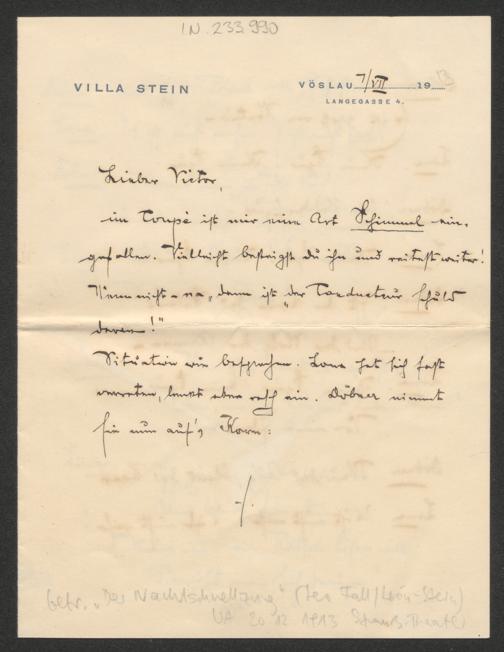 IN. 233.990
VILLA STEIN
VÖSLAU 7/VII 19 13
LANGEGASSE 4.
Lieber Victor,
im Coupé ist mir eine Art Schimmel ein-
gefallen. Vielleicht besteigst du ihn und reitest weiter!
Wenn nicht – na, dann ist „der Conducteur schuld
daran!"
Situation wie besprochen. Lona hat sich fast
verraten, lenkt aber rasch ein. Döbner nimmt
sie nun auf's Korn:
./.
betr. „Der Nachtschnellzug" (Leo Fall/Léon-Stein)
UA 20 12 1913 Strauß-Theater